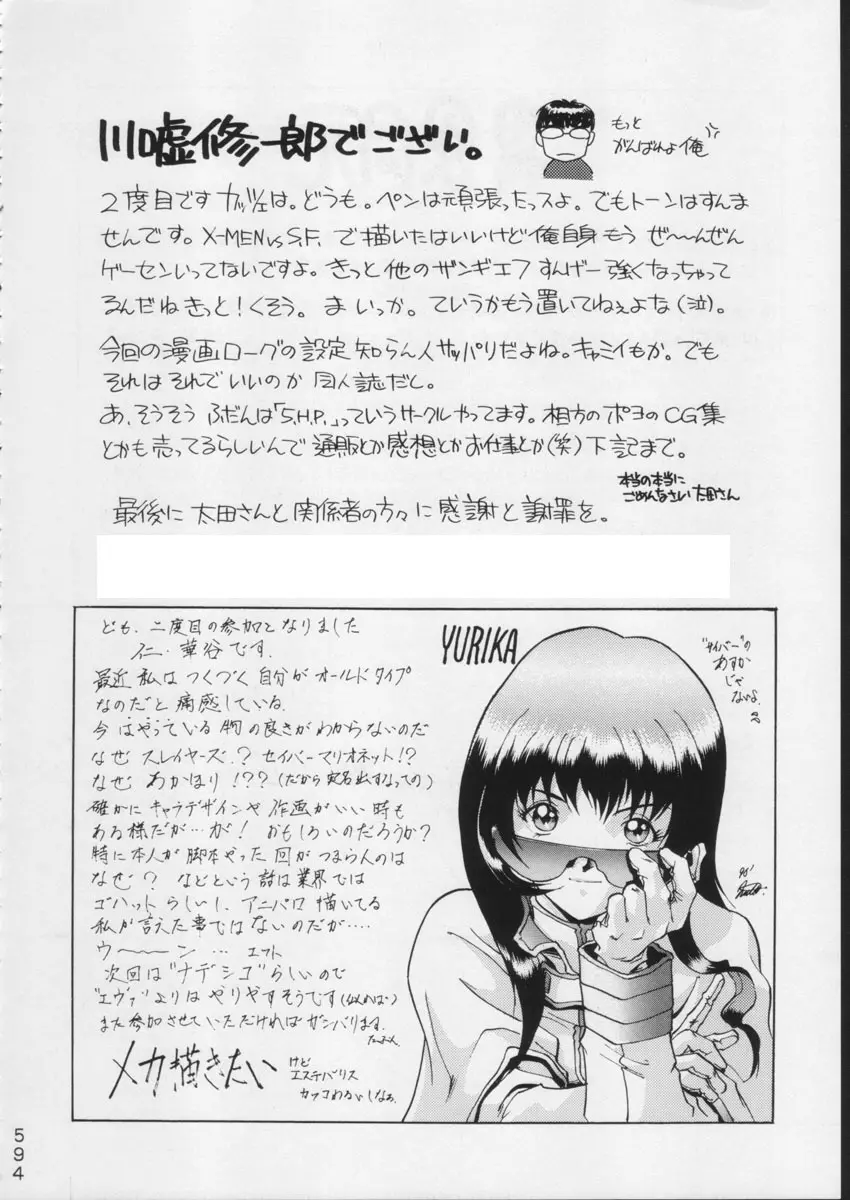 川口虚修一郎でござい。
もっと
がんばれよ俺
2度目です ガッツェは。どうも。ペンは頑張ったっスよ。でもトーンはすんま
せんです。X-MEN vs S.F. で描いたはいいけど俺自身もう ぜ〜〜んぜん
ゲーセンいってないですよ。きっと他のザンギエフ すんげー強くなっちゃって
るんだねきっと!くそう。まいっか。ていうかもう置いてねぇよな(泣)。
今回の漫画ローグの設定知らん人サッパリだよね。キャミイもか。でも
それはそれでいいのか 同人誌だと。
あ、そうそう ふだんは「S.H.P.」っていうサークルやってます。相方のポヨのCG集
とかも売ってるらしいんで通販とか感想とかお仕事とか(笑)下記まで。
本当の本当に
ごめんなさい太田さん
最後に太田さんと関係者の方々に感謝と謝罪を。
ども、二度目の参加となりました
仁・華谷です.
最近私はつくづく自分がオールドタイプ
なのだと痛感している.
今はやっている物の良さがわからないのだ
なぜ スレイヤーズ?セイバーマリオネット!?
なぜ あかほり!??(だから実名出すなっての)
確かにキャラデザインや作画がいい時も
ある様だが…が! おもしろいのだろうか?
特に本人が脚本やった回がつまらんのは
なぜ? などという話は業界では
ゴハットらしいし、アニパロ描いてる
私が言えた事ではないのだが….
ウーーーン …
次回は"ナデシコ"らしいので
"エヴァ"よりはやりやすそうです(なれば)
また参加させていただければガンバります.
メカ描きたい
けど
エステバリス
カッコわるいしなぁ.
YURIKA
"サイバー"の
あすか
じゃ
ないよ.
96'
594